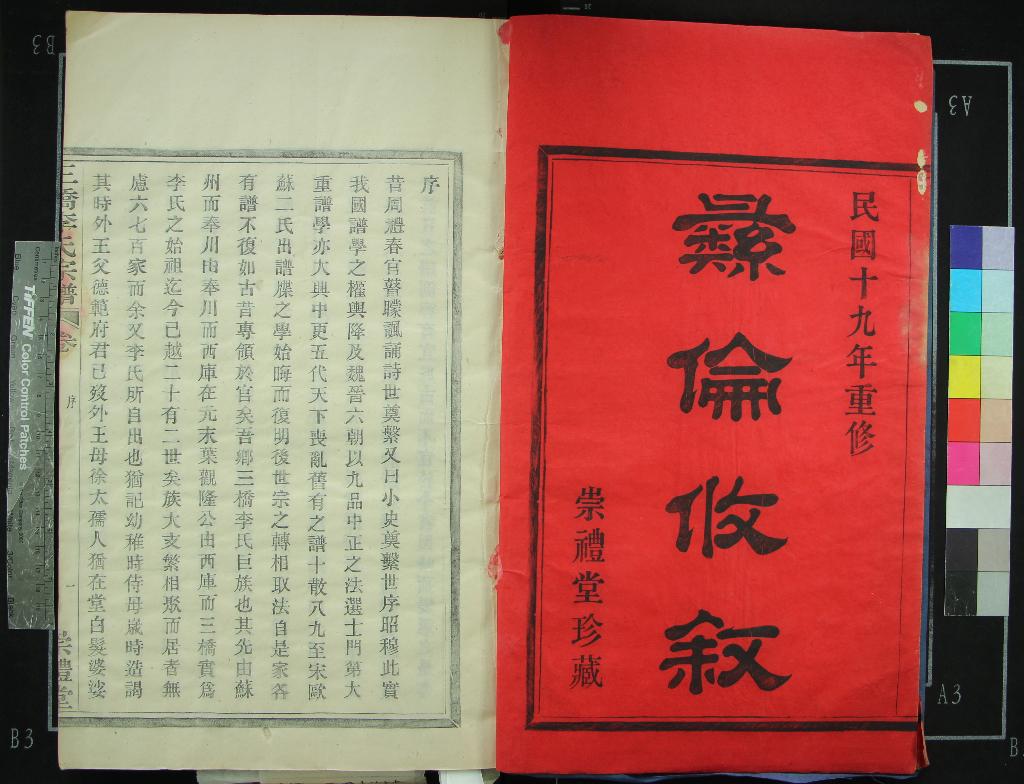 民國十九年重修
彝倫攸敘
崇禮堂珍藏
序
昔周禮春官瞽矇諷誦詩世奠繫又曰小史奠繫世序昭穆此實
我國譜學之權輿降及魏晉六朝以九品中正之法選士門第大
重譜學亦大興中更五代天下喪亂舊有之譜十散八九至宋歐
蘇二氏出譜牒之學始晦而復明後世宗之轉相取法自是家各
有譜不復如古昔專領於官矣吾鄉三橋李氏巨族也其先由蘇
州而奉川由奉川而西庫在元末葉觀隆公由西庫而三橋實爲
李氏之始祖迄今已越二十有二世矣族大支繁相聚而居者無
慮六七百家而余又李氏所自出也猶記幼稚時侍母歲時造謁
其時外王父德範府君已歿外王母徐太孺人猶在堂白髮婆娑
三橋李氏宗譜
卷
序
一
崇禮堂
TIFFEN Color Control Patches
B3
A3
A3
B3